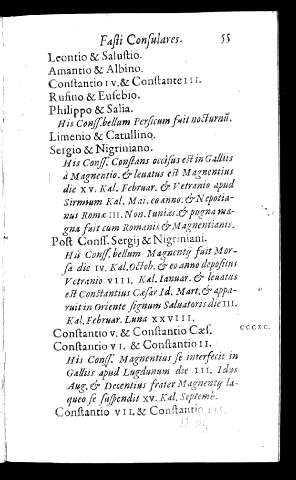 Fasti Consulares. 55
Leontio & Salustio.
Amantio & Albino.
Constantio IV. & Constante III.
Rufino & Eusebio.
Philippo & Salia.
His Conss. bellum Persicum fuit nocturnū.
Limenio & Catullino.
Sergio & Nigriniano.
His Conss. Constans occisus est in Galliis
à Magnentio. & leuatus est Magnentius
die XV. Kal. Februar. & Vetranio apud
Sirmium Kal. Mai. eo anno. & Nepotia-
nus Romæ III. Non. Iunias. & pugna ma-
gna fuit cum Romanis & Magnentianis.
Post Conss. Sergij & Nigriniani.
His Conss. bellum Magnentij fuit Mor-
sa die IV. Kal. Octob. & eo anno depositus
Vetranio VIII. Kal. Ianuar. & leuatus
est Constantius Cæsar Id. Mart. & appa-
ruit in Oriente signum Saluatoris die III.
Kal. Februar. Luna XXVIII.
Constantio V. & Constantio Cæs.
Constantio VI. & Constantio II.
His Conss. Magnentius se interfecit in
Galliis apud Lugdunum die III. Idus
Aug. & Decentius frater Magnentij la-
queo se suspendit XV. Kal. Septemb.
Constantio VII. & Constantio III.